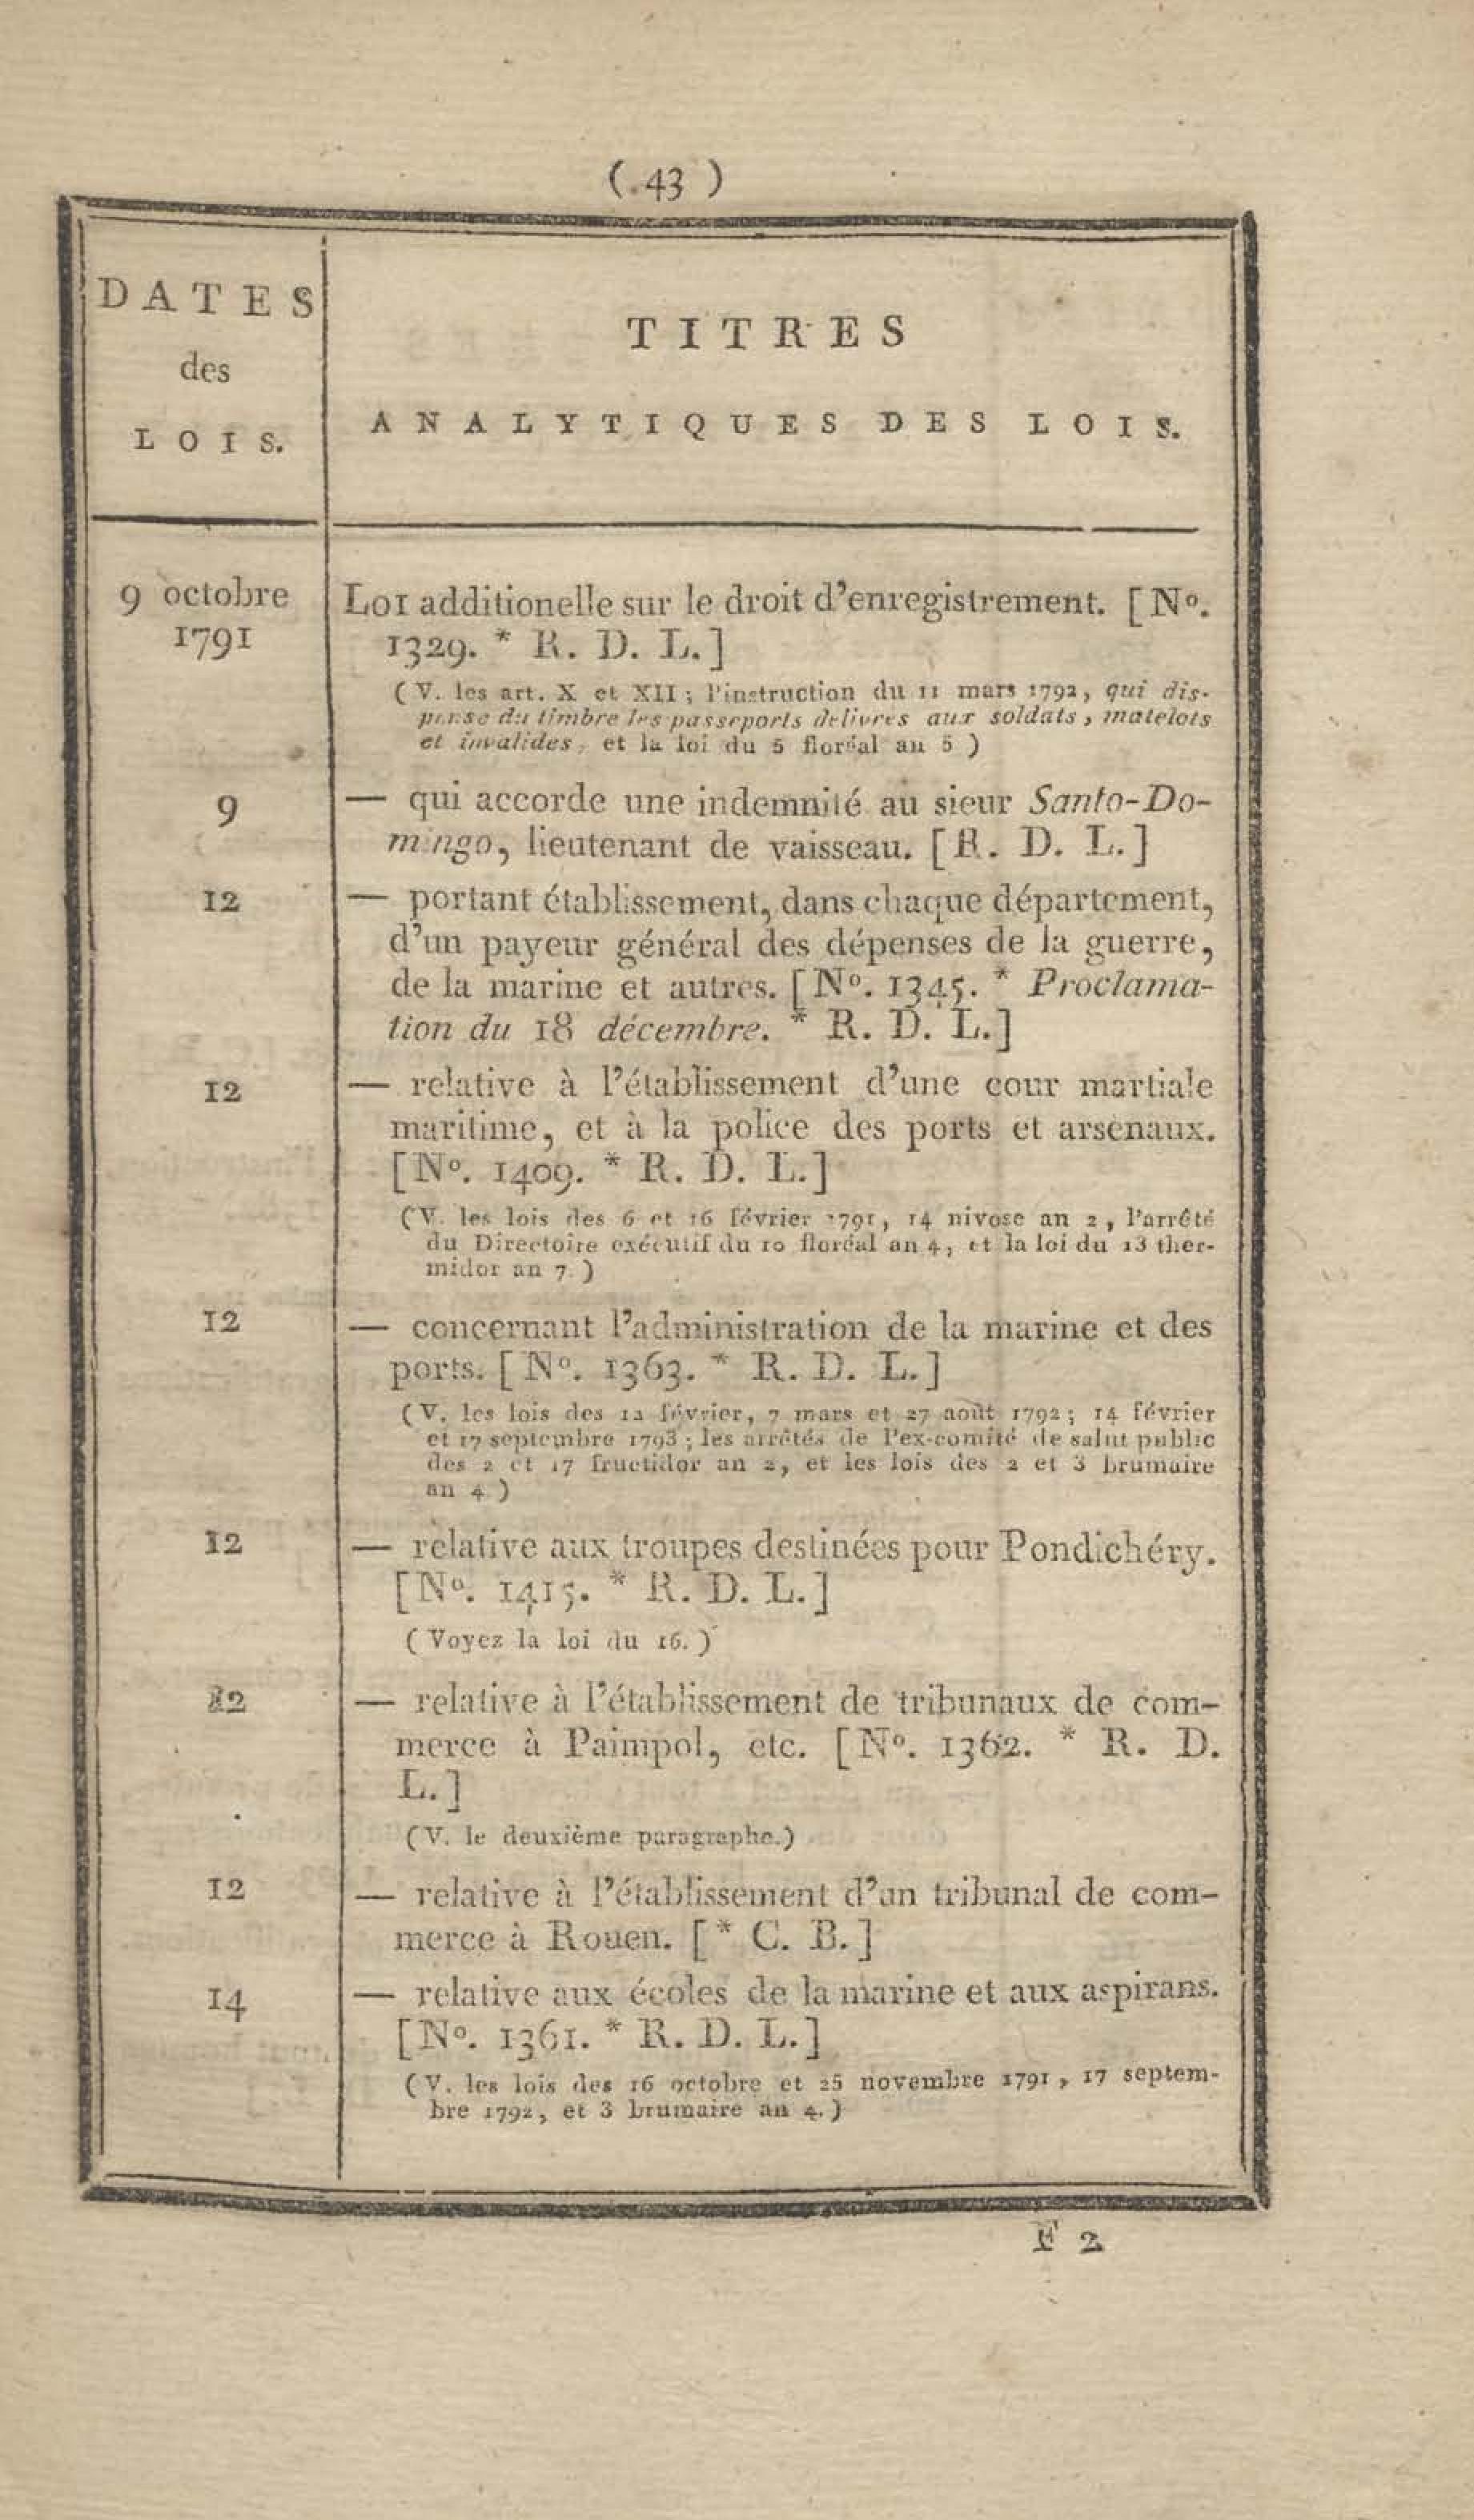 ( 43 )
DATES
des
LOIS.
TITRES
ANALYTIQUES DES LOIS.
9 octobre
1791
LOI additionelle sur le droit d'enregistrement. [N°.
1329. * R. D. L.]
(V. les art. X et XII; l'instruction du 11 mars 1792, qui dis-
pense du timbre les passeports délivrés aux soldats, matelots
et invalides, et la loi du 5 floréal an 5)
9
— qui accorde une indemnité au sieur Santo-Do-
mingo, lieutenant de vaisseau. [R. D. L.]
12
— portant établissement, dans chaque département,
d'un payeur général des dépenses de la guerre,
de la marine et autres. [N°. 1345. * Proclama-
tion du 18 décembre. * R. D. L.]
12
— relative à l'établissement d'une cour martiale
maritime, et à la police des ports et arsenaux.
[N°. 1409. * R. D. L.]
(V. les lois des 6 et 16 février 1791, 14 nivose an 2, l'arrêté
du Directoire exécutif du 10 floréal an 4, et la loi du 13 ther-
midor an 7.)
12
— concernant l'administration de la marine et des
ports. [N°. 1363. * R. D. L.]
(V. les lois des 12 février, 7 mars et 27 août 1792; 14 février
et 17 septembre 1793; les arrêtés de l'ex-comité de salut public
des 2 et 17 fructidor an 2, et les lois des 2 et 3 brumaire
an 4)
12
— relative aux troupes destinées pour Pondichéry.
[N°. 1415. * R. D. L.]
(Voyez la loi du 16.)
12
— relative à l'établissement de tribunaux de com-
merce à Paimpol, etc. [N°. 1362. * R. D.
L.]
(V. le deuxième paragraphe.)
12
— relative à l'établissement d'un tribunal de com-
merce à Rouen. [* C. B.]
14
— relative aux écoles de la marine et aux aspirans.
[N°. 1361. * R. D. L.]
(V. les lois des 16 octobre et 25 novembre 1791, 17 septem-
bre 1792, et 3 brumaire an 4.)
F 2